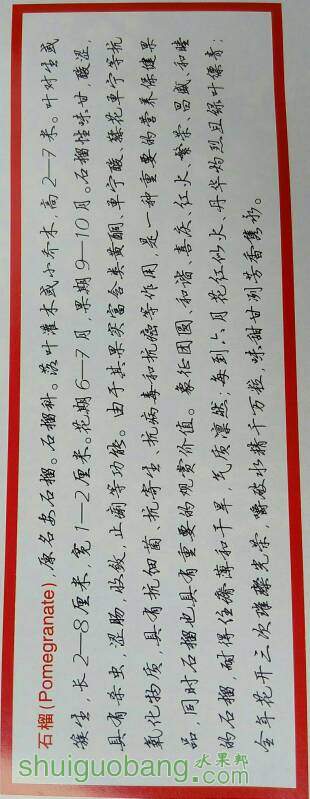 石榴(Pomegranate) 原名安石榴。石榴科。落叶灌木或小乔木，高2—7米。叶对生或
簇生，长2—8厘米，宽1—2厘米。花期6—7月，果期9—10月。石榴性味甘、酸涩，
具有杀虫、涩肠、收敛、止痢等功能。由于其果实富含类黄酮、单宁酸、鞣花单宁等抗
氧化物质，具有抗细菌、抗寄生、抗病毒和抗癌等作用，是一种重要的营养保健果
品，同时石榴也具有重要的观赏价值。象征团圆、和谐、喜庆、红火、繁荣、昌盛、和睦
的石榴，耐得住瘠薄和干旱，气质凛然；每到六月花红似火，丹华灼烈且绿叶像青；
全年花开三次璀璨光荣，嚼破水精千万粒，味甜甘洌芳香隽永。
水果邦
shuiguobang.com